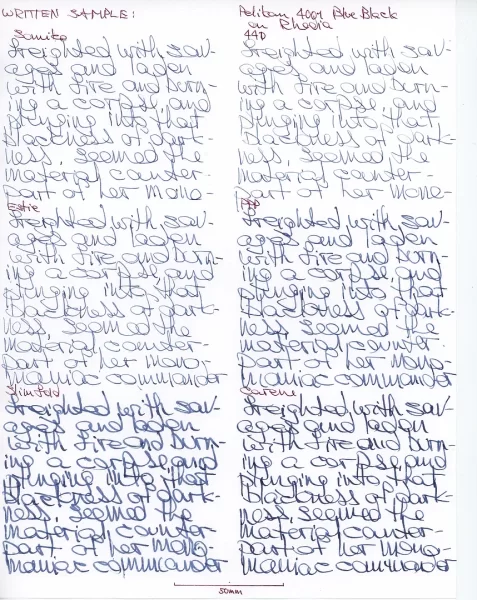 WRITTEN SAMPLE:
Pelikan 4001 Blue Black
on Rhodia
Somiko
freighted with sav-
ages and laden
with fire and burn-
ing a corpse, and
plunging into that
blackness of dark-
ness, seemed the
material counter-
part of her mono-
44D
freighted with sav-
ages and laden
with fire and burn-
ing a corpse, and
plunging into that
blackness of dark-
ness, seemed the
material counter-
part of her mono-
Estie
freighted with sav-
ages and laden
with fire and burn-
ing a corpse and
plunging into that
blackness of dark-
ness, seemed the
material counter-
part of her mono-
maniac commander
PPP
freighted with sav-
ages and laden
with fire and burn-
ing a corpse, and
plunging into that
blackness of dark-
ness seemed the
material counter-
part of her mono-
maniac commander
Slimfold
freighted with sav-
ages and laden
with fire and burn-
ing a corpse, and
plunging into that
blackness of dark-
ness, seemed the
material counter-
part of her mono-
maniac commander
Serene
freighted with sav-
ages and laden
with fire and burn-
ing a corpse, and
plunging into that
blackness of dark-
ness, seemed the
material counter-
part of her mono-
maniac commander
50mm